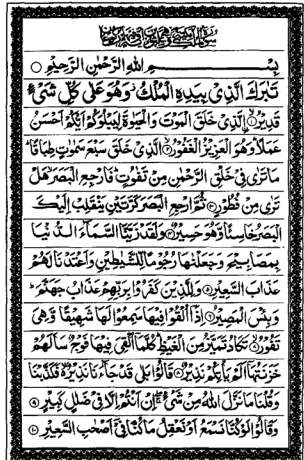 بِسْمِ اللهِ الرَّحْمٰنِ الرَّحِيْمِ
تَبٰرَكَ الَّذِیْ بِیَدِهِ الْمُلْكُ وَهُوَ عَلٰی كُلِّ شَیْءٍ
قَدِیْرُ الَّذِیْ خَلَقَ الْمَوْتَ وَالْحَیٰوةَ لِیَبْلُوَكُمْ اَیُّكُمْ اَحْسَنُ
عَمَلًا وَهُوَ الْعَزِیْزُ الْغَفُوْرُ الَّذِیْ خَلَقَ سَبْعَ سَمٰوٰتٍ طِبَاقًا
مَا تَرٰی فِیْ خَلْقِ الرَّحْمٰنِ مِنْ تَفٰوُتٍ فَارْجِعِ الْبَصَرَ هَلْ
تَرٰی مِنْ فُطُوْرٍ ثُمَّ ارْجِعِ الْبَصَرَ كَرَّتَیْنِ یَنْقَلِبْ اِلَیْكَ
الْبَصَرُ خَاسِئًا وَّهُوَ حَسِیْرٌ وَلَقَدْ زَیَّنَّا السَّمَآءَ الدُّنْیَا
بِمَصَابِیْحَ وَجَعَلْنٰهَا رُجُوْمًا لِّلشَّیٰطِیْنِ وَاَعْتَدْنَا لَهُمْ
عَذَابَ السَّعِیْرِ وَلِلَّذِیْنَ كَفَرُوْا بِرَبِّهِمْ عَذَابُ جَهَنَّمَ
وَبِئْسَ الْمَصِیْرُ اِذَآ اُلْقُوْا فِیْهَا سَمِعُوْا لَهَا شَهِیْقًا وَّهِیَ
تَفُوْرُ تَكَادُ تَمَیَّزُ مِنَ الْغَیْظِ كُلَّمَآ اُلْقِیَ فِیْهَا فَوْجٌ سَاَلَهُمْ
خَزَنَتُهَآ اَلَمْ یَاْتِكُمْ نَذِیْرٌ قَالُوْا بَلٰی قَدْ جَآءَنَا نَذِیْرٌ فَكَذَّبْنَا
وَقُلْنَا مَا نَزَّلَ اللهُ مِنْ شَیْءٍ اِنْ اَنْتُمْ اِلَّا فِیْ ضَلٰلٍ كَبِیْرٍ ۹
وَقَالُوْا لَوْ كُنَّا نَسْمَعُ اَوْ نَعْقِلُ مَا كُنَّا فِیْٓ اَصْحٰبِ السَّعِیْرِ ۱۰